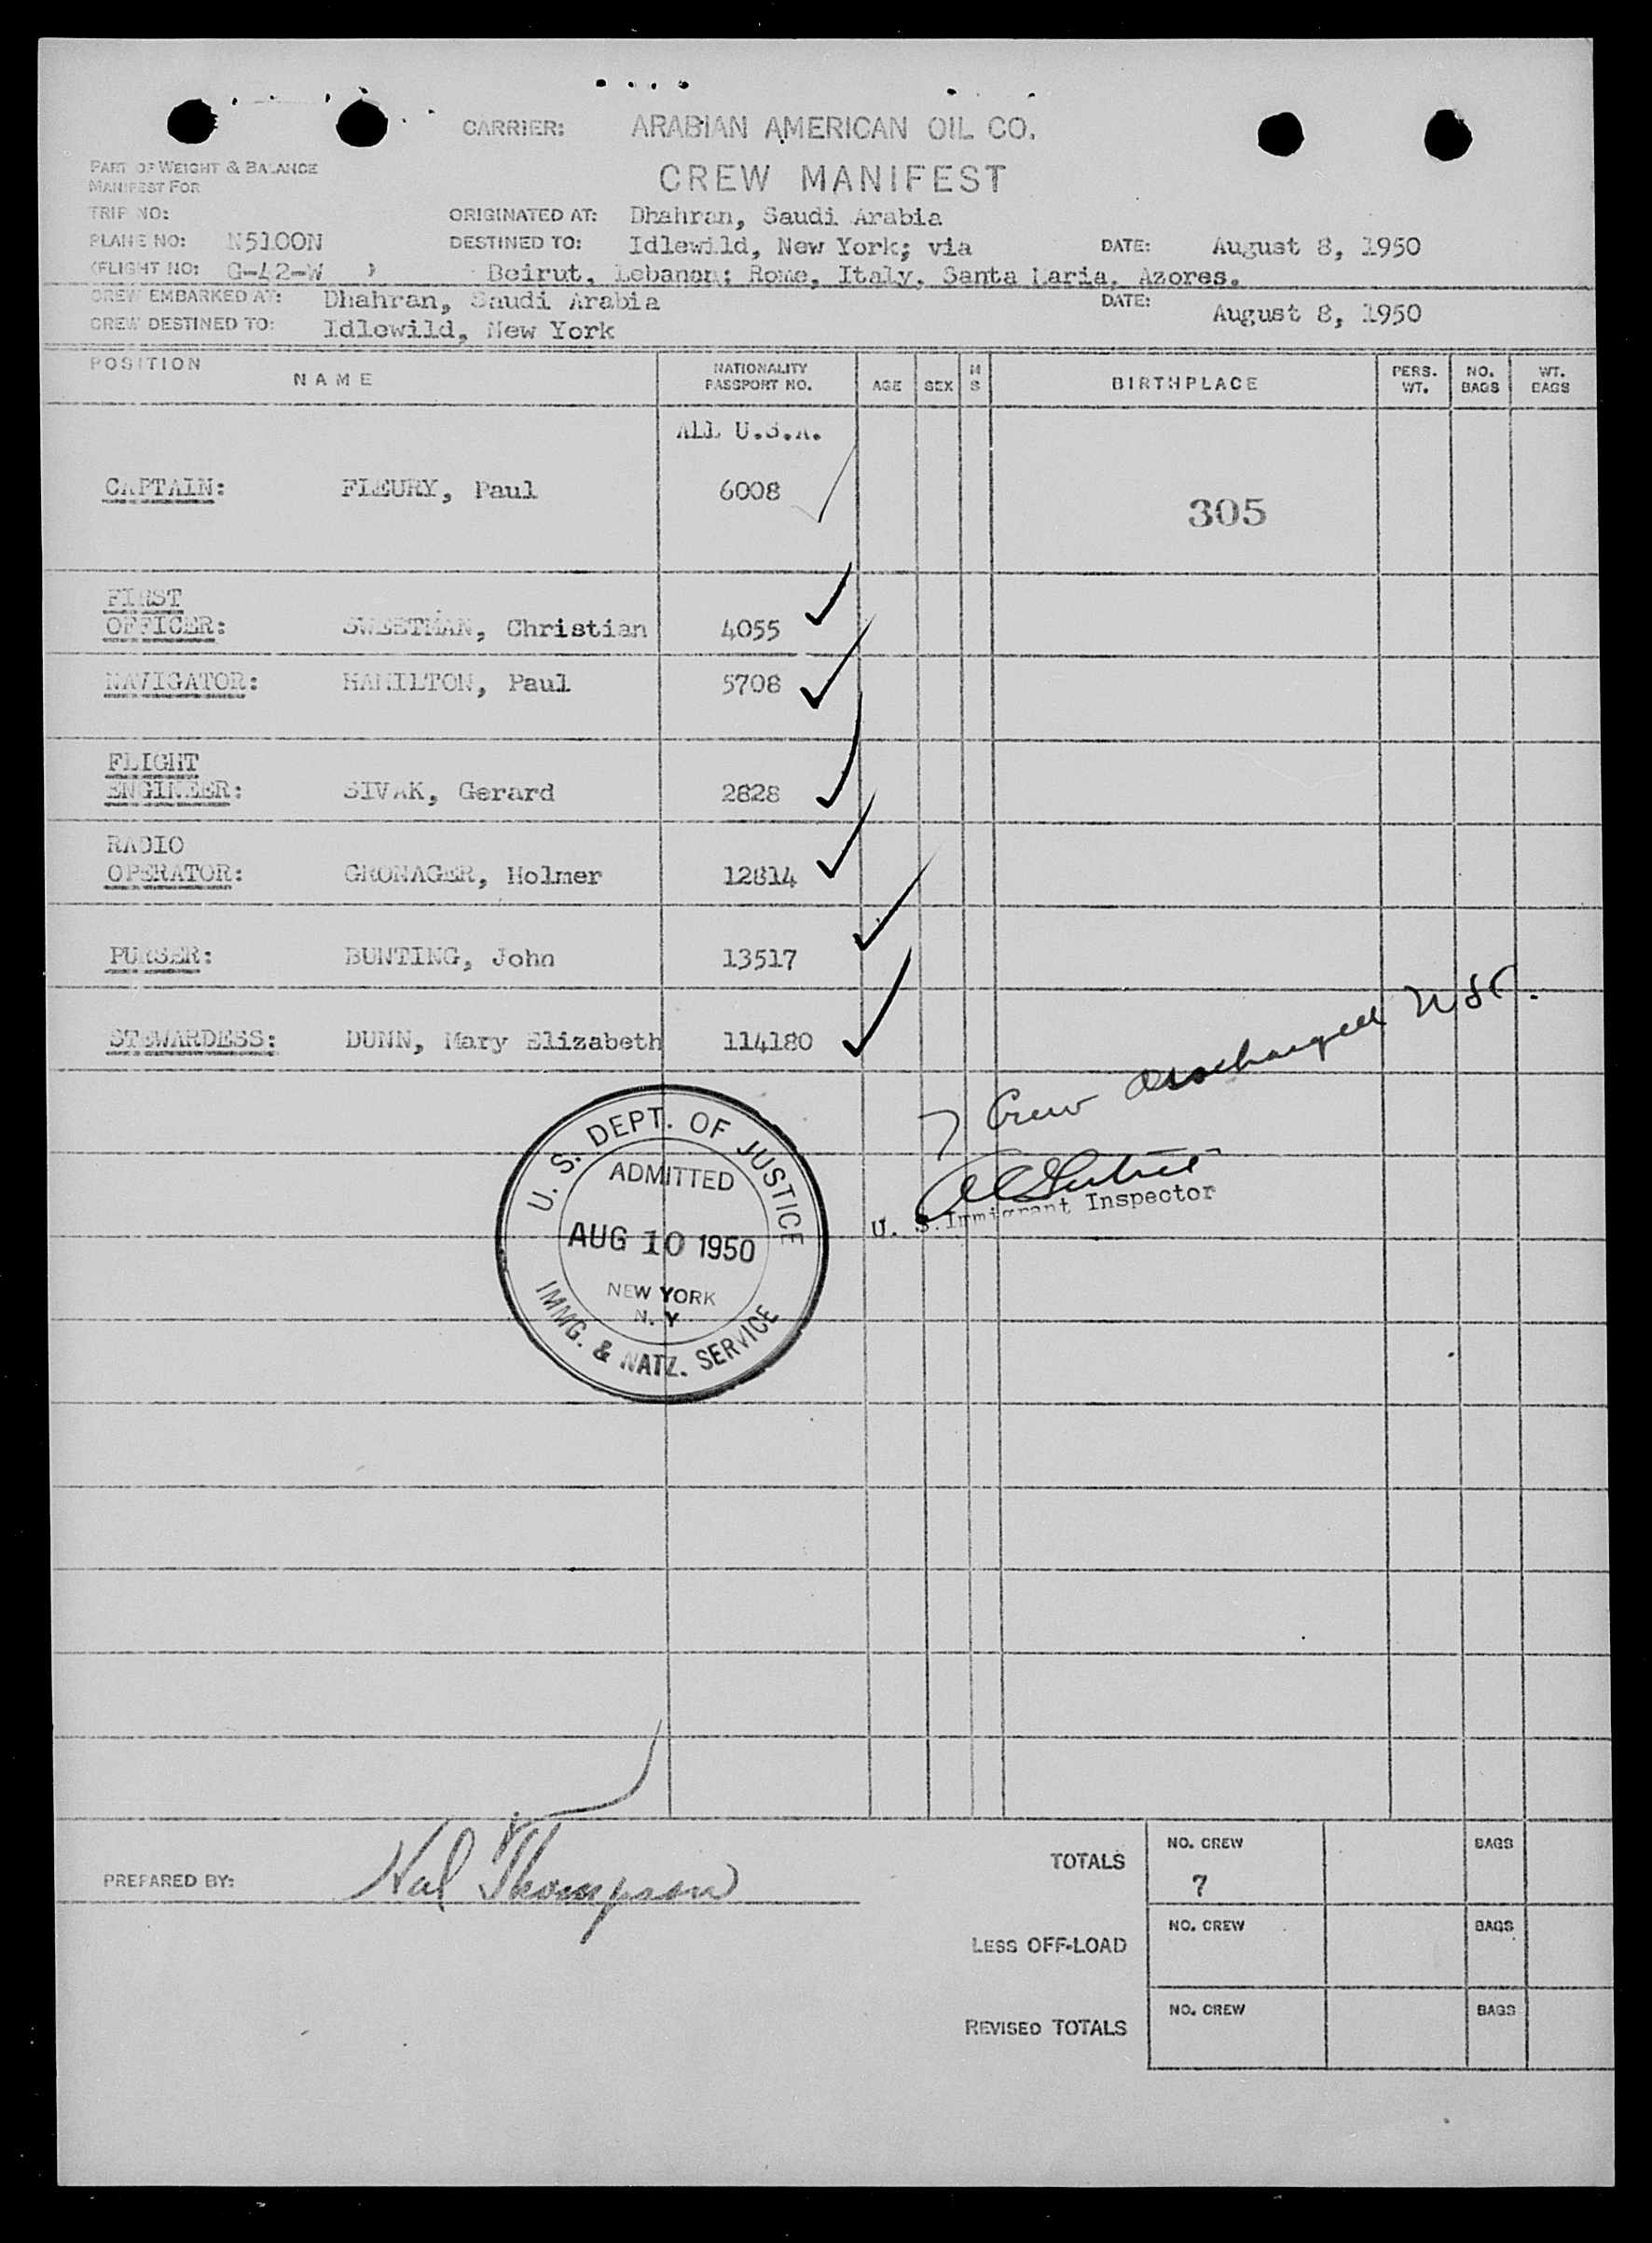 CARRIER: ARABIAN AMERICAN OIL CO.
PART OF WEIGHT & BALANCE
MANIFEST FOR
CREW MANIFEST
TRIP NO: ORIGINATED AT: Dhahran, Saudi Arabia
PLANE NO: N5100N DESTINED TO: Idlewild, New York; via DATE: August 8, 1950
(FLIGHT NO: G-42-W ) Beirut, Lebanon; Rome, Italy, Santa Maria, Azores.
CREW EMBARKED AT: Dhahran, Saudi Arabia DATE: August 8, 1950
CREW DESTINED TO: Idlewild, New York
POSITION NAME NATIONALITY PASSPORT NO. AGE SEX M S BIRTHPLACE PERS. WT. NO. BAGS WT. BAGS
ALL U.S.A.
CAPTAIN: FLEURY, Paul 6008
305
FIRST
OFFICER: SWEETMAN, Christian 4055
NAVIGATOR: HAMILTON, Paul 5708
FLIGHT
ENGINEER: SIVAK, Gerard 2828
RADIO
OPERATOR: GRONAGER, Holmer 12814
PURSER: BUNTING, John 13517
STEWARDESS: DUNN, Mary Elizabeth 114180
7 Crew Discharged
U. S. Immigrant Inspector
U. S. DEPT. OF JUSTICE
ADMITTED
AUG 10 1950
NEW YORK
N. Y.
IMMG. & NATZ. SERVICE
PREPARED BY: Hal Thompson
TOTALS NO. CREW 7 BAGS
LESS OFF-LOAD NO. CREW BAGS
REVISED TOTALS NO. CREW BAGS